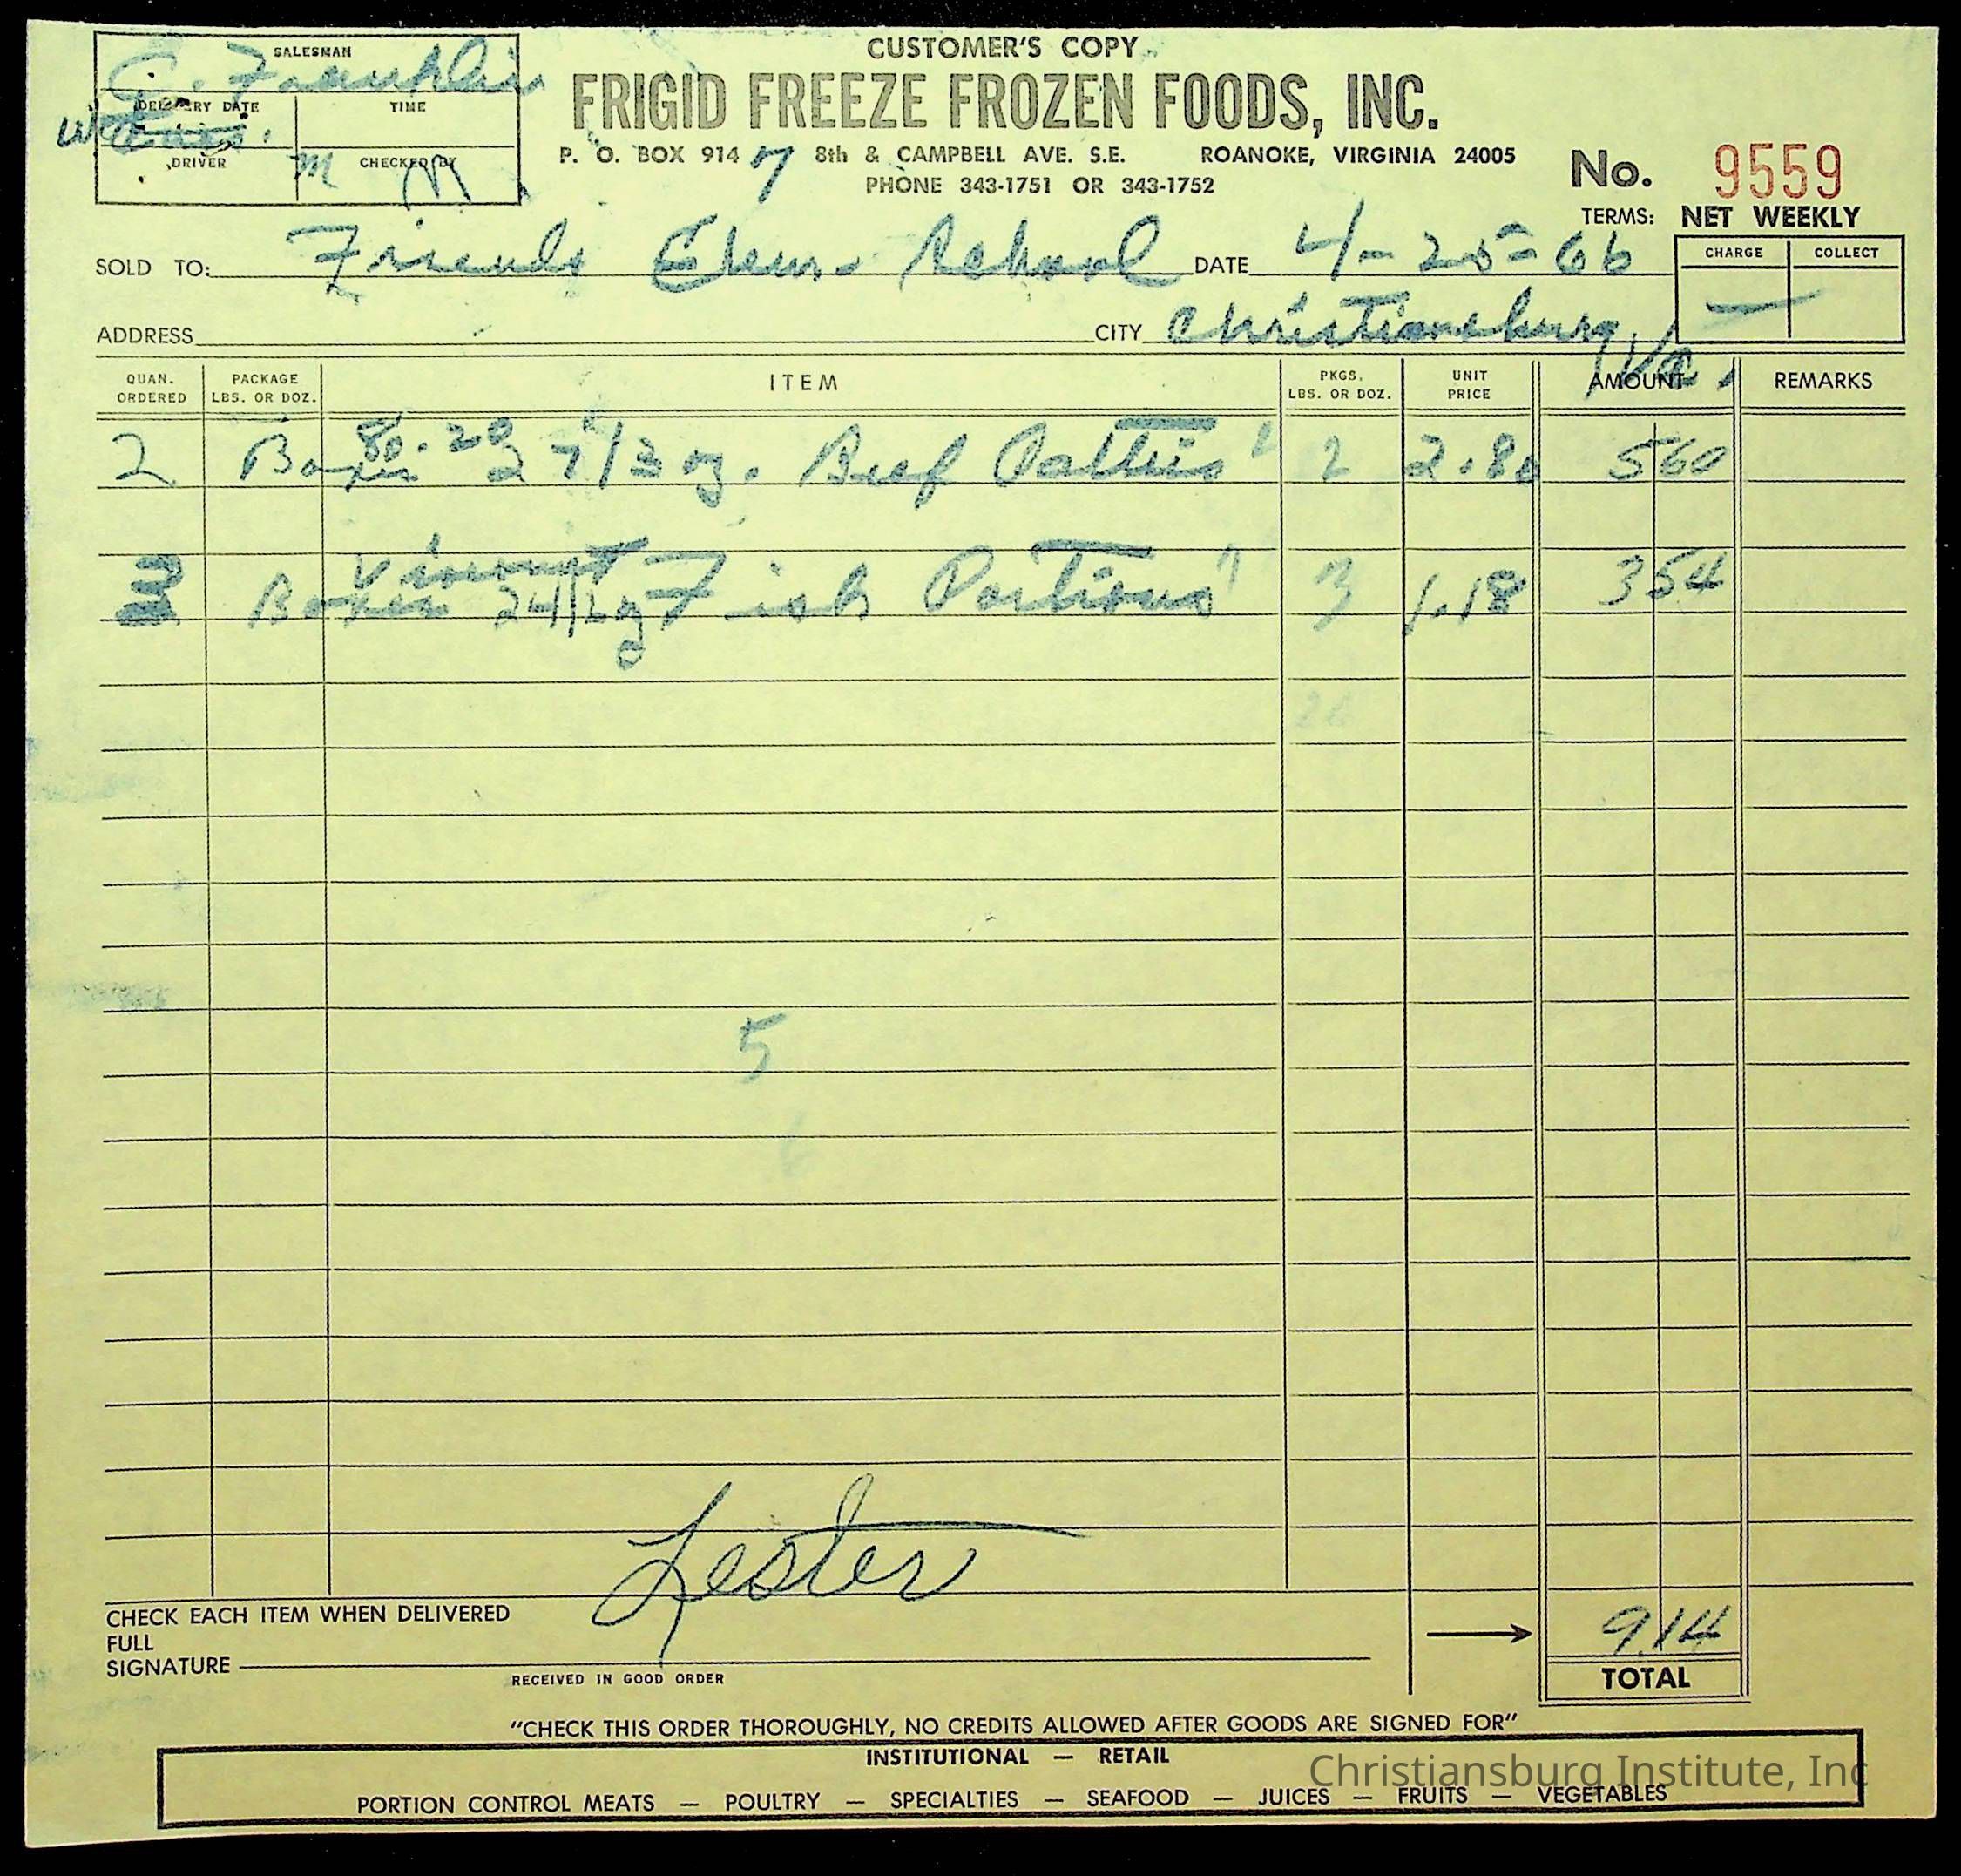 CUSTOMER'S COPY
FRIGID FREEZE FROZEN FOODS, INC.
P. O. BOX 914 8th & CAMPBELL AVE. S.E. ROANOKE, VIRGINIA 24005
PHONE 343-1751 OR 343-1752
SALESMAN
C. Franklin
DELIVERY DATE TIME
DRIVER CHECKED BY
No. 9559
TERMS: NET WEEKLY
CHARGE COLLECT
SOLD TO: Friends Elem. School DATE 4-25-66
ADDRESS CITY Christiansburg, Va.
QUAN. ORDERED PACKAGE LBS. OR DOZ. ITEM PKGS. LBS. OR DOZ. UNIT PRICE AMOUNT REMARKS
2 Boxes 3 oz. Beef Patties 2 2.80 560
3 Boxes Fish Portions 3 1.18 354
5
Lester
CHECK EACH ITEM WHEN DELIVERED
FULL
SIGNATURE
RECEIVED IN GOOD ORDER
914
TOTAL
"CHECK THIS ORDER THOROUGHLY, NO CREDITS ALLOWED AFTER GOODS ARE SIGNED FOR"
INSTITUTIONAL — RETAIL
PORTION CONTROL MEATS — POULTRY — SPECIALTIES — SEAFOOD — JUICES — FRUITS — VEGETABLES
Christiansburg Institute, Inc